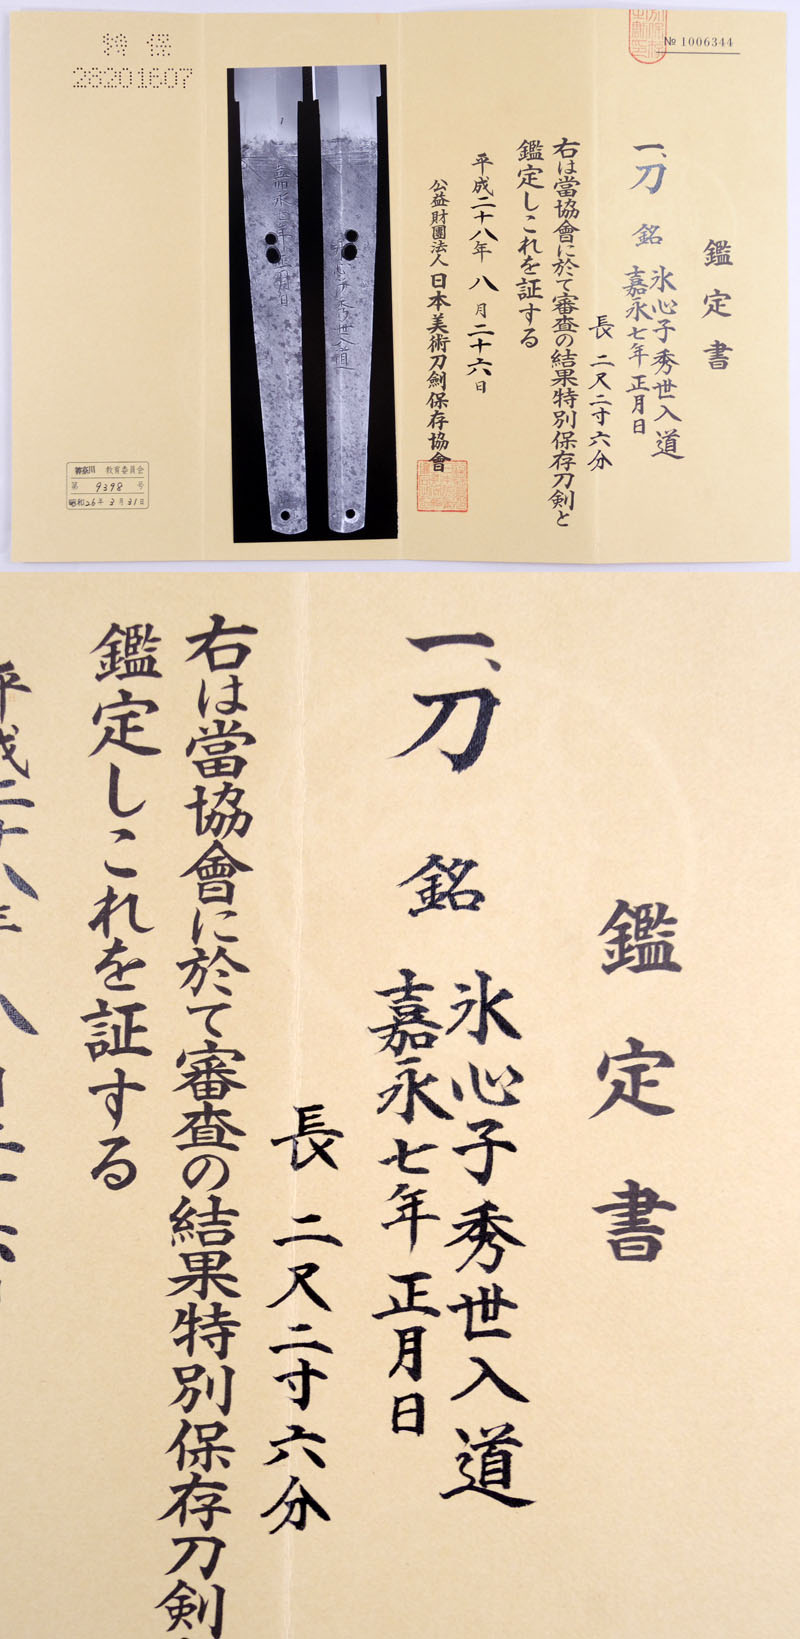 鑑定書
一、刀 銘 氷心子秀世入道
嘉永七年正月日
長 二尺二寸六分
右は當協會に於て審査の結果特別保存刀剣と
鑑定しこれを証する
平成二十八年 八月二十六日
公益財團法人 日本美術刀劍保存協會
№ 1006344
特保
28201607
神奈川 教育委員会
第 9398 号
昭和26年3月31日
嘉永七年正月日
秀世入道
鑑定書
一、刀 銘 氷心子秀世入道
嘉永七年正月日
長 二尺二寸六分
右は當協會に於て審査の結果特別保存刀剣
鑑定しこれを証する
平成二十八年 八月二十六日